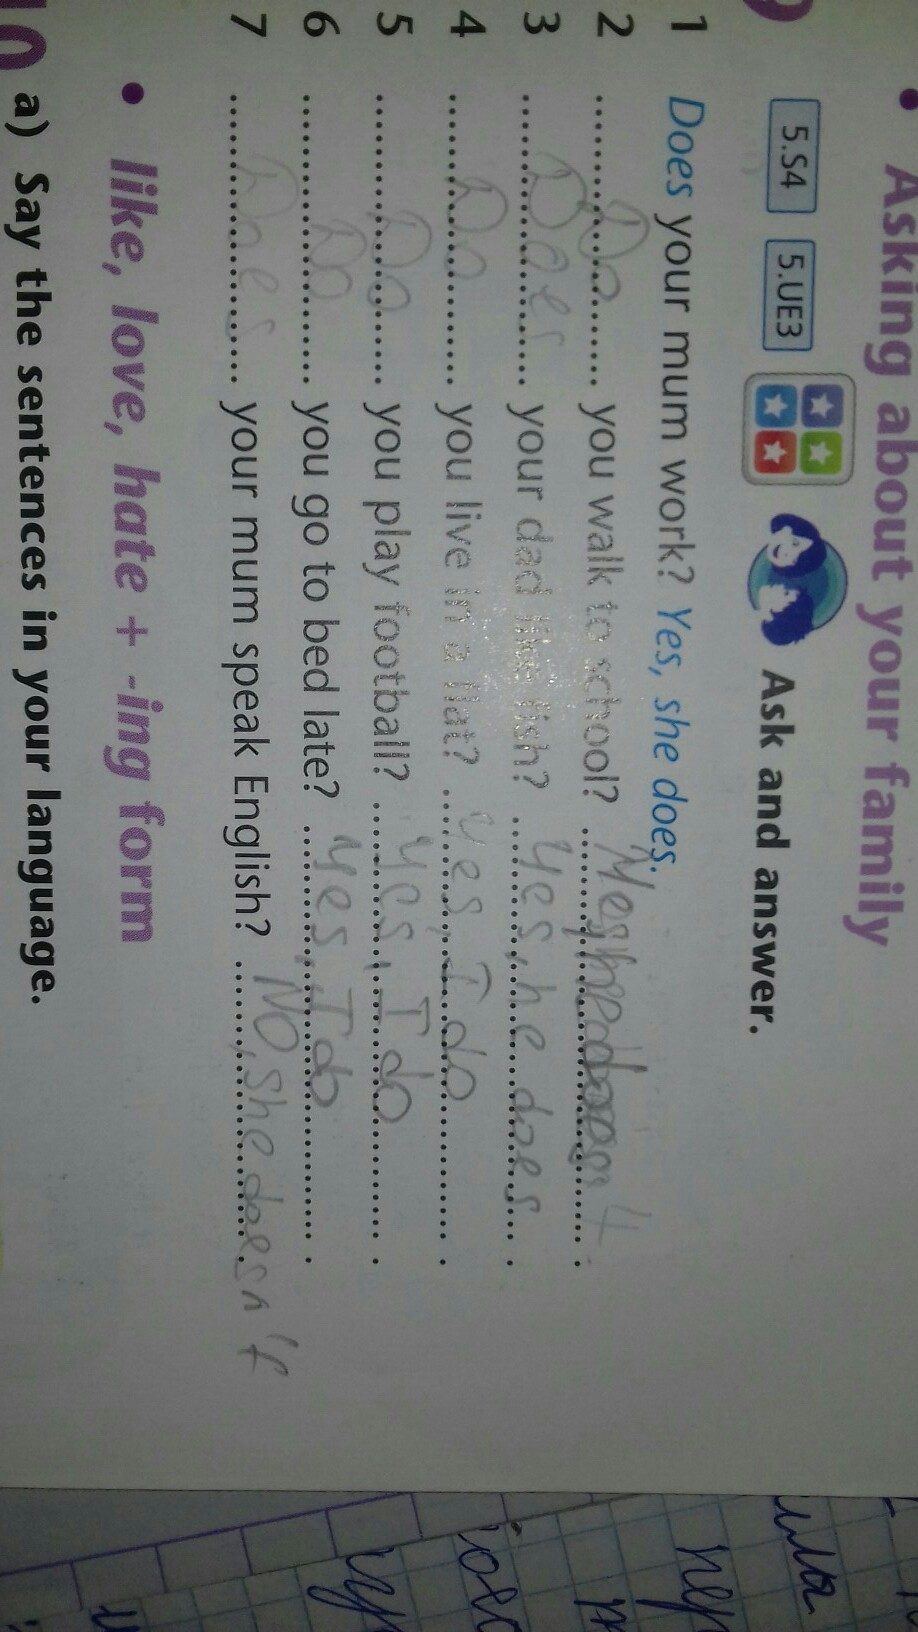 Asking about your family
5.S4 5.UE3 Ask and answer.
1 Does your mum work? Yes, she does.
2 Do you walk to school?
3 Does your dad like fish? Yes, he does
4 Do you live in a flat? Yes, I do
5 Do you play football? Yes, I do
6 Do you go to bed late? Yes, I do
7 Does your mum speak English? NO, she doesn't
like, love, hate + -ing form
a) Say the sentences in your language.